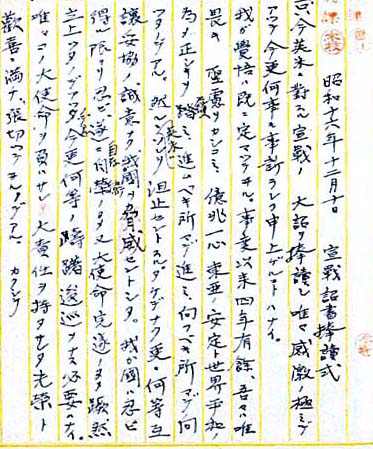 昭和十六年十二月十日　宣戦詔書捧読式
今英米ニ対スル宣戦ノ大詔ヲ捧読シ唯々感激ノ極ミデ
アツテ今更何事モ事新ラシク申上ゲルコトハナイ。
我ガ覚悟ハ既ニ定マツテヰル。事変以来四年有余、吾々ハ唯
畏キ聖霊ヲカシコミ億兆一心東亜ノ安定ト世界平和ノ
為メ正シキヲ踏ミ進ムベキ所マデ進ミ、向フベキ所マデ向
ツタノデアル。然ルニ英米ハ之ヲ阻止セントスルダケデナク更ニ何等互
譲妥協ノ誠意ナク我国ヲ脅威セントシタ。我ガ国ハ忍ビ
得ル限リ忍ビ遂ニ自存自衛ノタメ又大使命完遂ノタメ蹶然
立上ツタノデアツテ今更何等ノ躊躇逡巡ヲナス必要ハナイ。
唯々コノ大使命ヲ負ハサレ大責任ヲ持タセタ光栄ト
歓喜ニ満ナ、張切ツテヰルノデアル。カクシテ